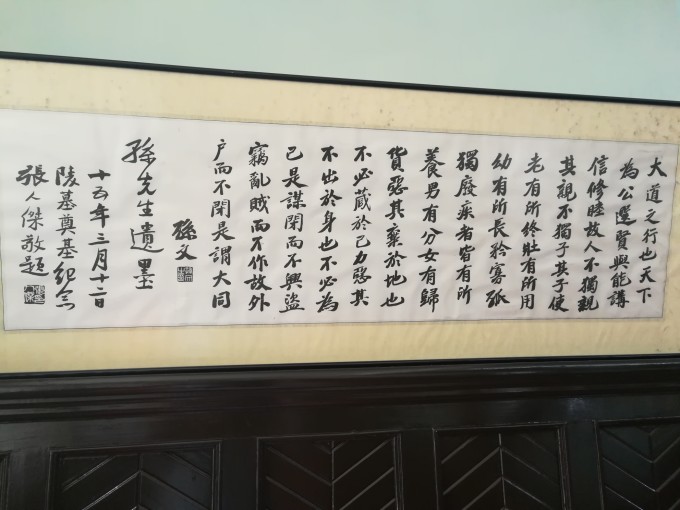 大道之行也天下
為公選賢與能講
信修睦故人不獨親
其親不獨子其子使
老有所終壯有所用
幼有所長矜寡孤
獨廢疾者皆有所
養男有分女有歸
貨惡其棄於地也
不必藏於己力惡其
不出於身也不必為
己是謀閉而不興盜
竊亂賊而不作故外
户而不閉是謂大同
孫文
孫先生遺墨
十五年三月十二日
陵基奠基紀念
張人傑敬題